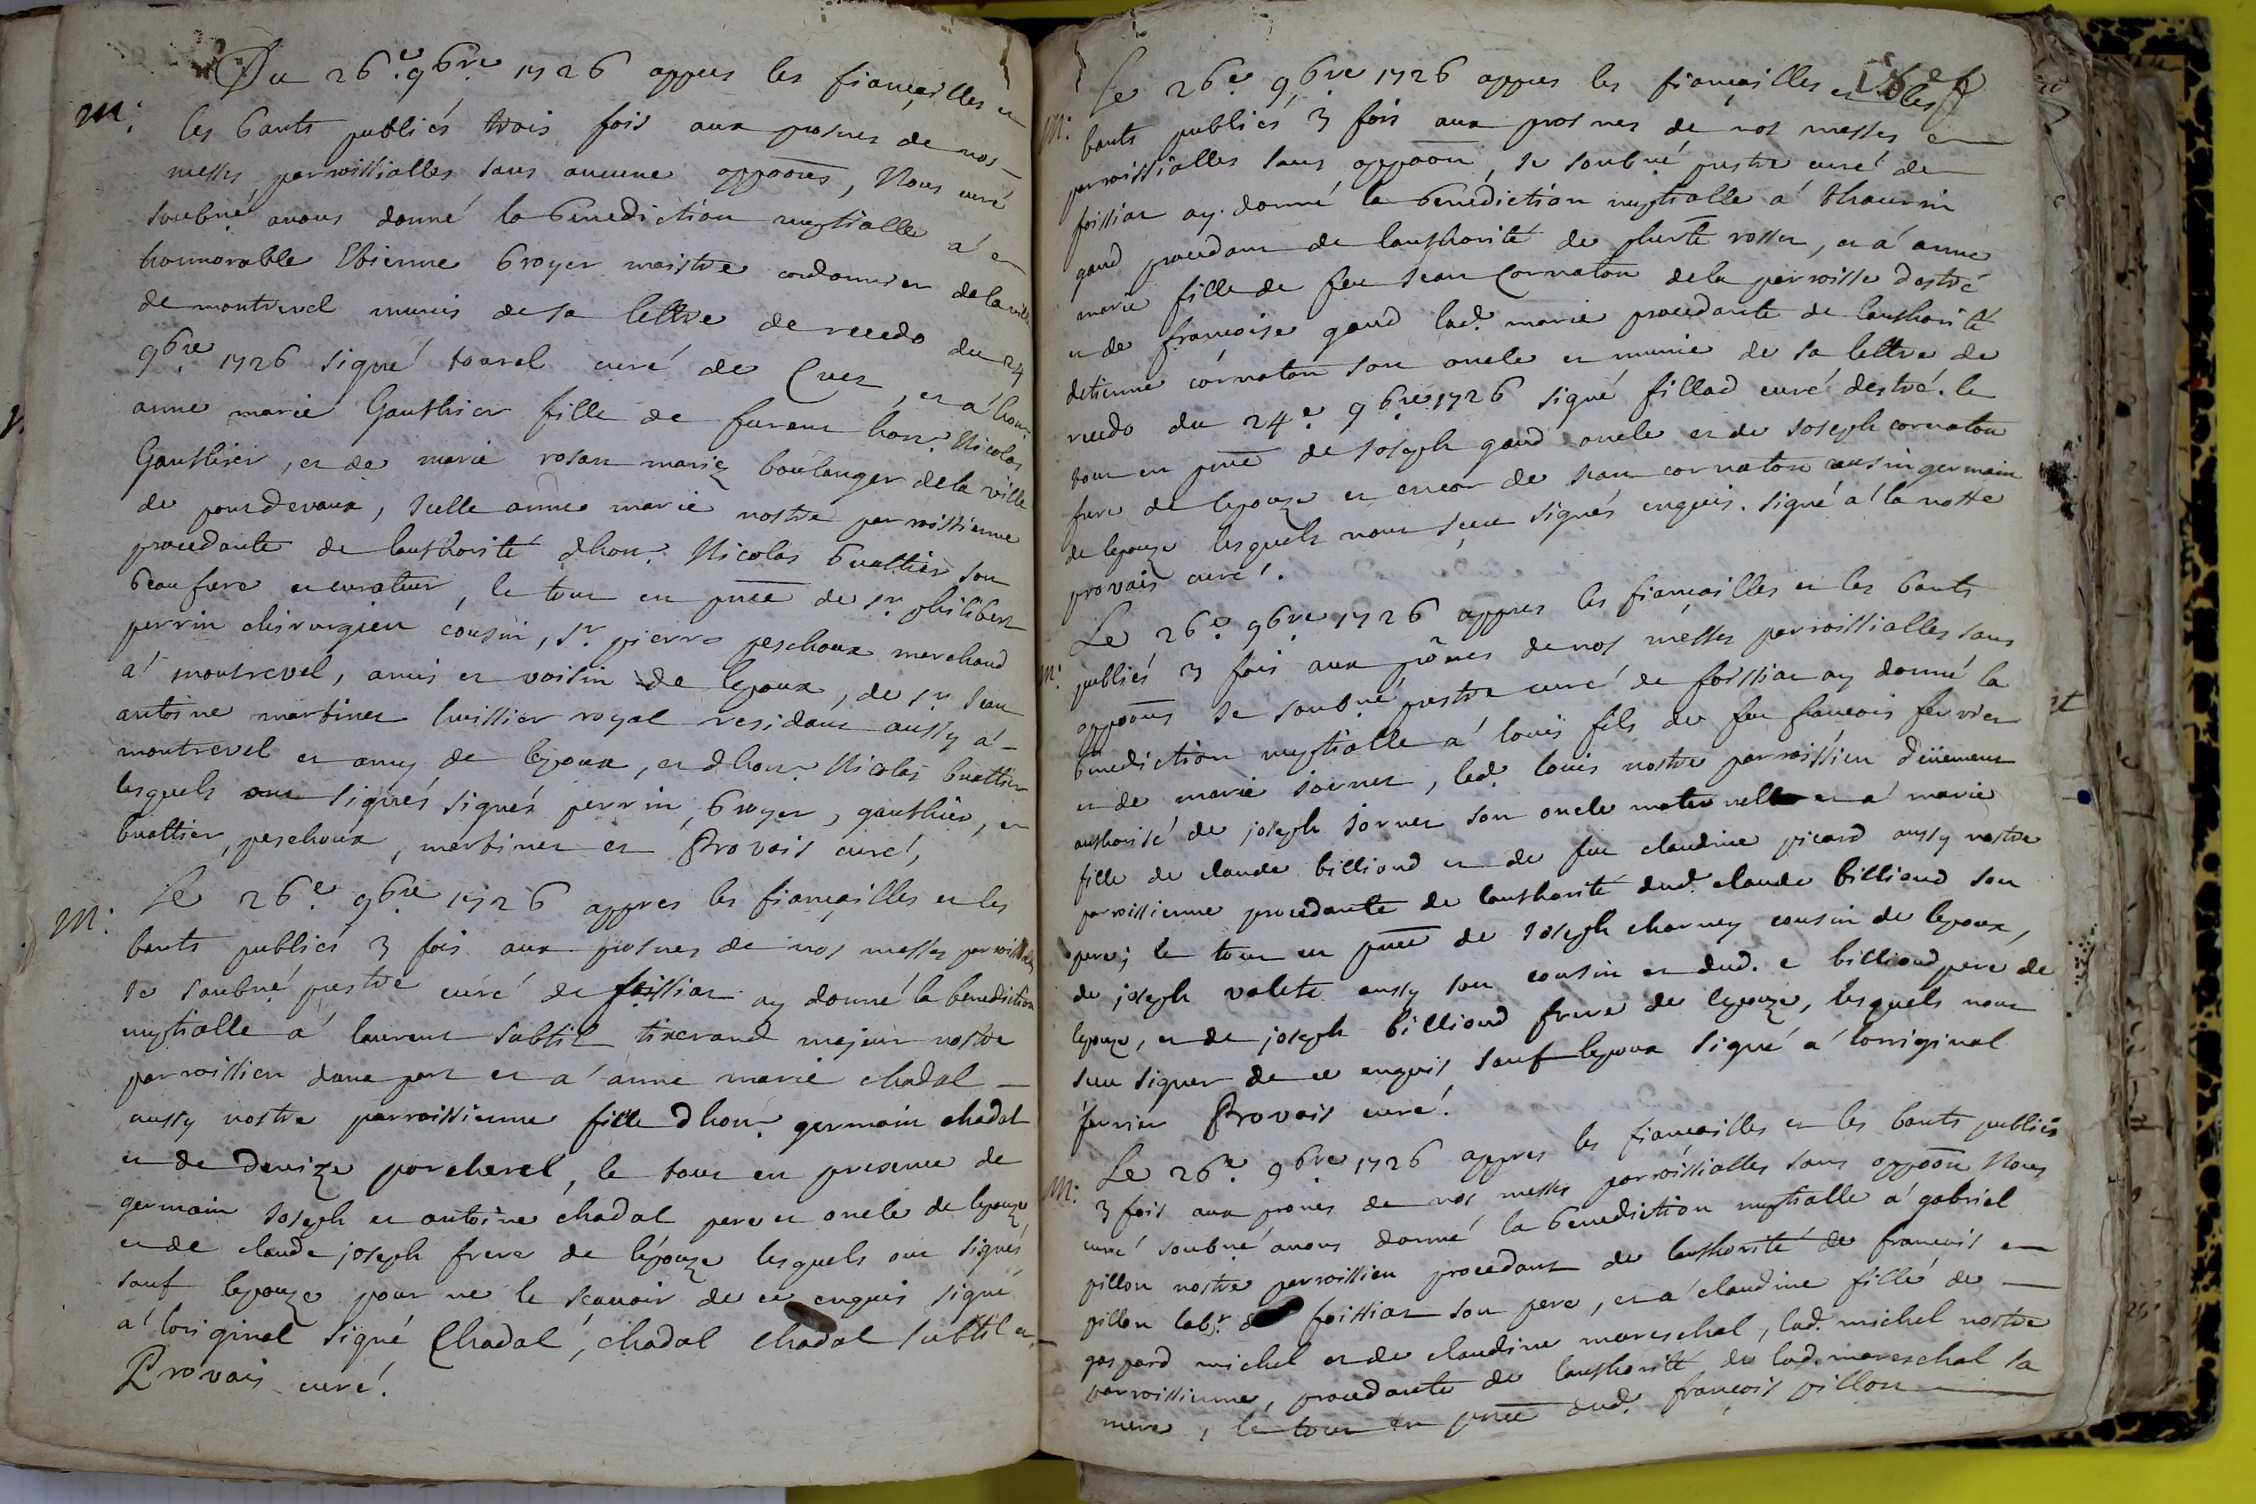 Du 26.e 9bre 1726 appres les fiançailles et
M: les bants publiés trois fois aux prosnes de nos
messes parroissialles sans aucune oppoōns, Nous curé
soubné avons donné la benediction nuptialle a
honnorable Etienne broyer maistre cordonnier de la ville
de montrevel munis de sa lettre de recedo du 24
9bre 1726 signé tourel curé de Cuet, et a hon.
anne marie Gauthier fille de furent hon.e Nicolas
Gauthier, et de marie rosan mariez boulanger de la ville
de pondevaux, icelle anne marie nostre parroissienne
procedante de lauthorité dhon.e Nicolas buattier son
beaufrere et curateur, le tout en pñce de sr. philibert
perrin chirurgien cousin, sr. pierre peschoux marchand
a montrevel, amis et voisin de lepoux, de sr. Jean
antoine martinet huissier royal residant aussy a
montrevel et amy de lepoux, et dhon.e Nicolas buattier
lesquels ont signés signés perrin, broyer, gauthier, et
buattier, peschoux, martinet et Provais curé,
M: Le 26.e 9bre 1726 appres les fiançailles et les
bants publiés 3 fois aux prosnes de nos messes parroissialles
Je soubné prestre curé de foissiat ay donné la benediction
nuptialle a laurent subtil tixerand majeur nostre
parroissien dune part et a anne marie chadal
aussy nostre parroissienne fille dhon.e germain chadal
et de denize porcherel, le tout en presence de
germain Joseph et antoine chadal pere et oncle de lepouze
et de claude joseph frere de lépouze lesquels ont signés
sauf lepouze pour ne le scavoir de ce enquis signé
a loriginal signé Chadal, chadal chadal subtil et
Provais curé.
Le 26.e 9bre 1726 appres les fiançailles et les
M: bants publiés 3 fois aux prosnes de nos messes
parroissialles sans oppoōn, Je soubné prestre curé de
foissiat ay donné la benediction nuptialle a thaurin
gaud procedant de lauthorité de phert rosset, et a anne
marie fille de feu Jean Cornaton de la parroisse destré
et de françoise gaud lad. marie procedante de lauthorité
detienne cornaton son oncle et munie de sa lettre de
recedo du 24.e 9bre 1726 signé fillod curé destré. le
tout en pñce de Joseph gaud oncle et de Joseph cornaton
frere de lepouze et encor de Jean cornaton cousin germain
de lepouze lesquels nont sceu signés enquis. signé a la notte
provais curé.
Le 26.e 9bre 1726 appres les fiançailles et les bants
M: publiés 3 fois aux prônes de nos messes parroissialles sans
oppoōns Je soubné prestre curé de foissiat ay donné la
benediction nuptialle a louis fils de feu francois fevrier
et de marie Jornet, led. louis nostre parroissien düement
authorisé de joseph Jornet son oncle maternel et a marie
fille de claude billioud et de feu claudine picard aussy nostre
parroissienne procedante de lauthorité dud. claude billioud son
pere; le tout en pñce de Joseph charney cousin de lepoux,
de joseph valete aussy son cousin et dud. c billioud pere de
lepouze, et de joseph billioud frere de lepouze, lesquels nont
sceu signer de ce enquis sauf lepoux signé a lorriginal
fevrier Provais curé.
Le 26.e 9bre 1726 appres les fiançailles et les bants publiés
M: 3 fois aux prones de nos messes parroissialles sans oppoōn Nous
curé soubné avons donné la benediction nuptialle a gabriel
pillon nostre parroissien procedant de lauthorité de françois
pillon lab.r foissiat son pere, et a claudine fille de
gaspard michel et de claudine mareschal, lad. michel nostre
parroissienne, procedante de lauthorité de lad. mareschal sa
mere, le tout en pñce dud. françois pillon